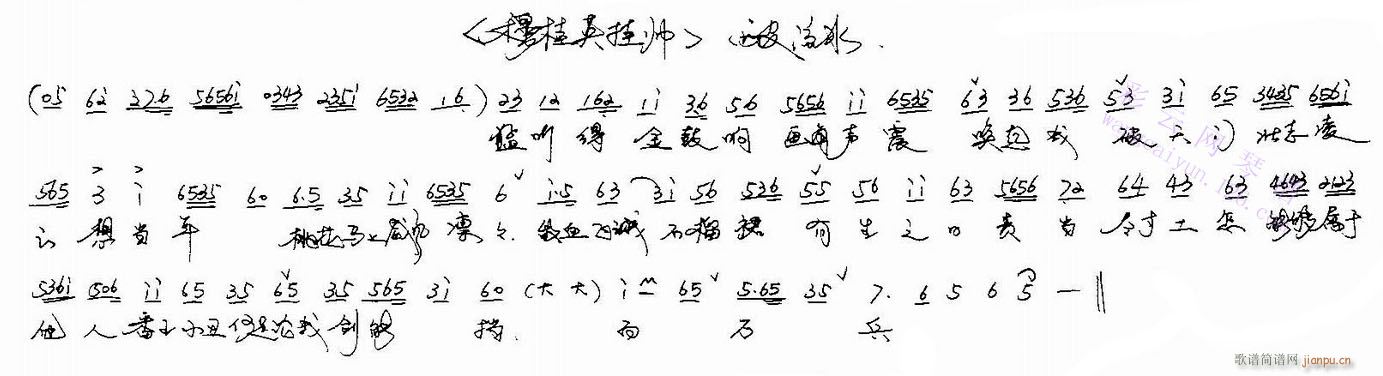 《穆桂英挂帅》 流水
(05 6i 27.6 5656i 0343 235i 6532 16) 23 12 162 1i 36 56 5656 ii 6535 63 36 536 53 3i 65 3435 656i
听得金鼓响画角声震 唤起我破天门壮志凌
565 3 i 6535 60 6.5 35 ii 6535 6 i.5 63 3i 56 536 55 56 ii 63 5656 72 64 43 63 4643 2123
云 想当年 桃花马上威风凛々 敌血飞溅石榴裙 有生之日责当 寸土怎 属于
536i 506 ii 65 35 65 35 565 3i 60 (大大) i 65 5.65 35 7. 6 5 6 5 —
他人番王小丑 我剑 挡 百万兵
彩云网琴
歌谱简谱网 jianpu.cn